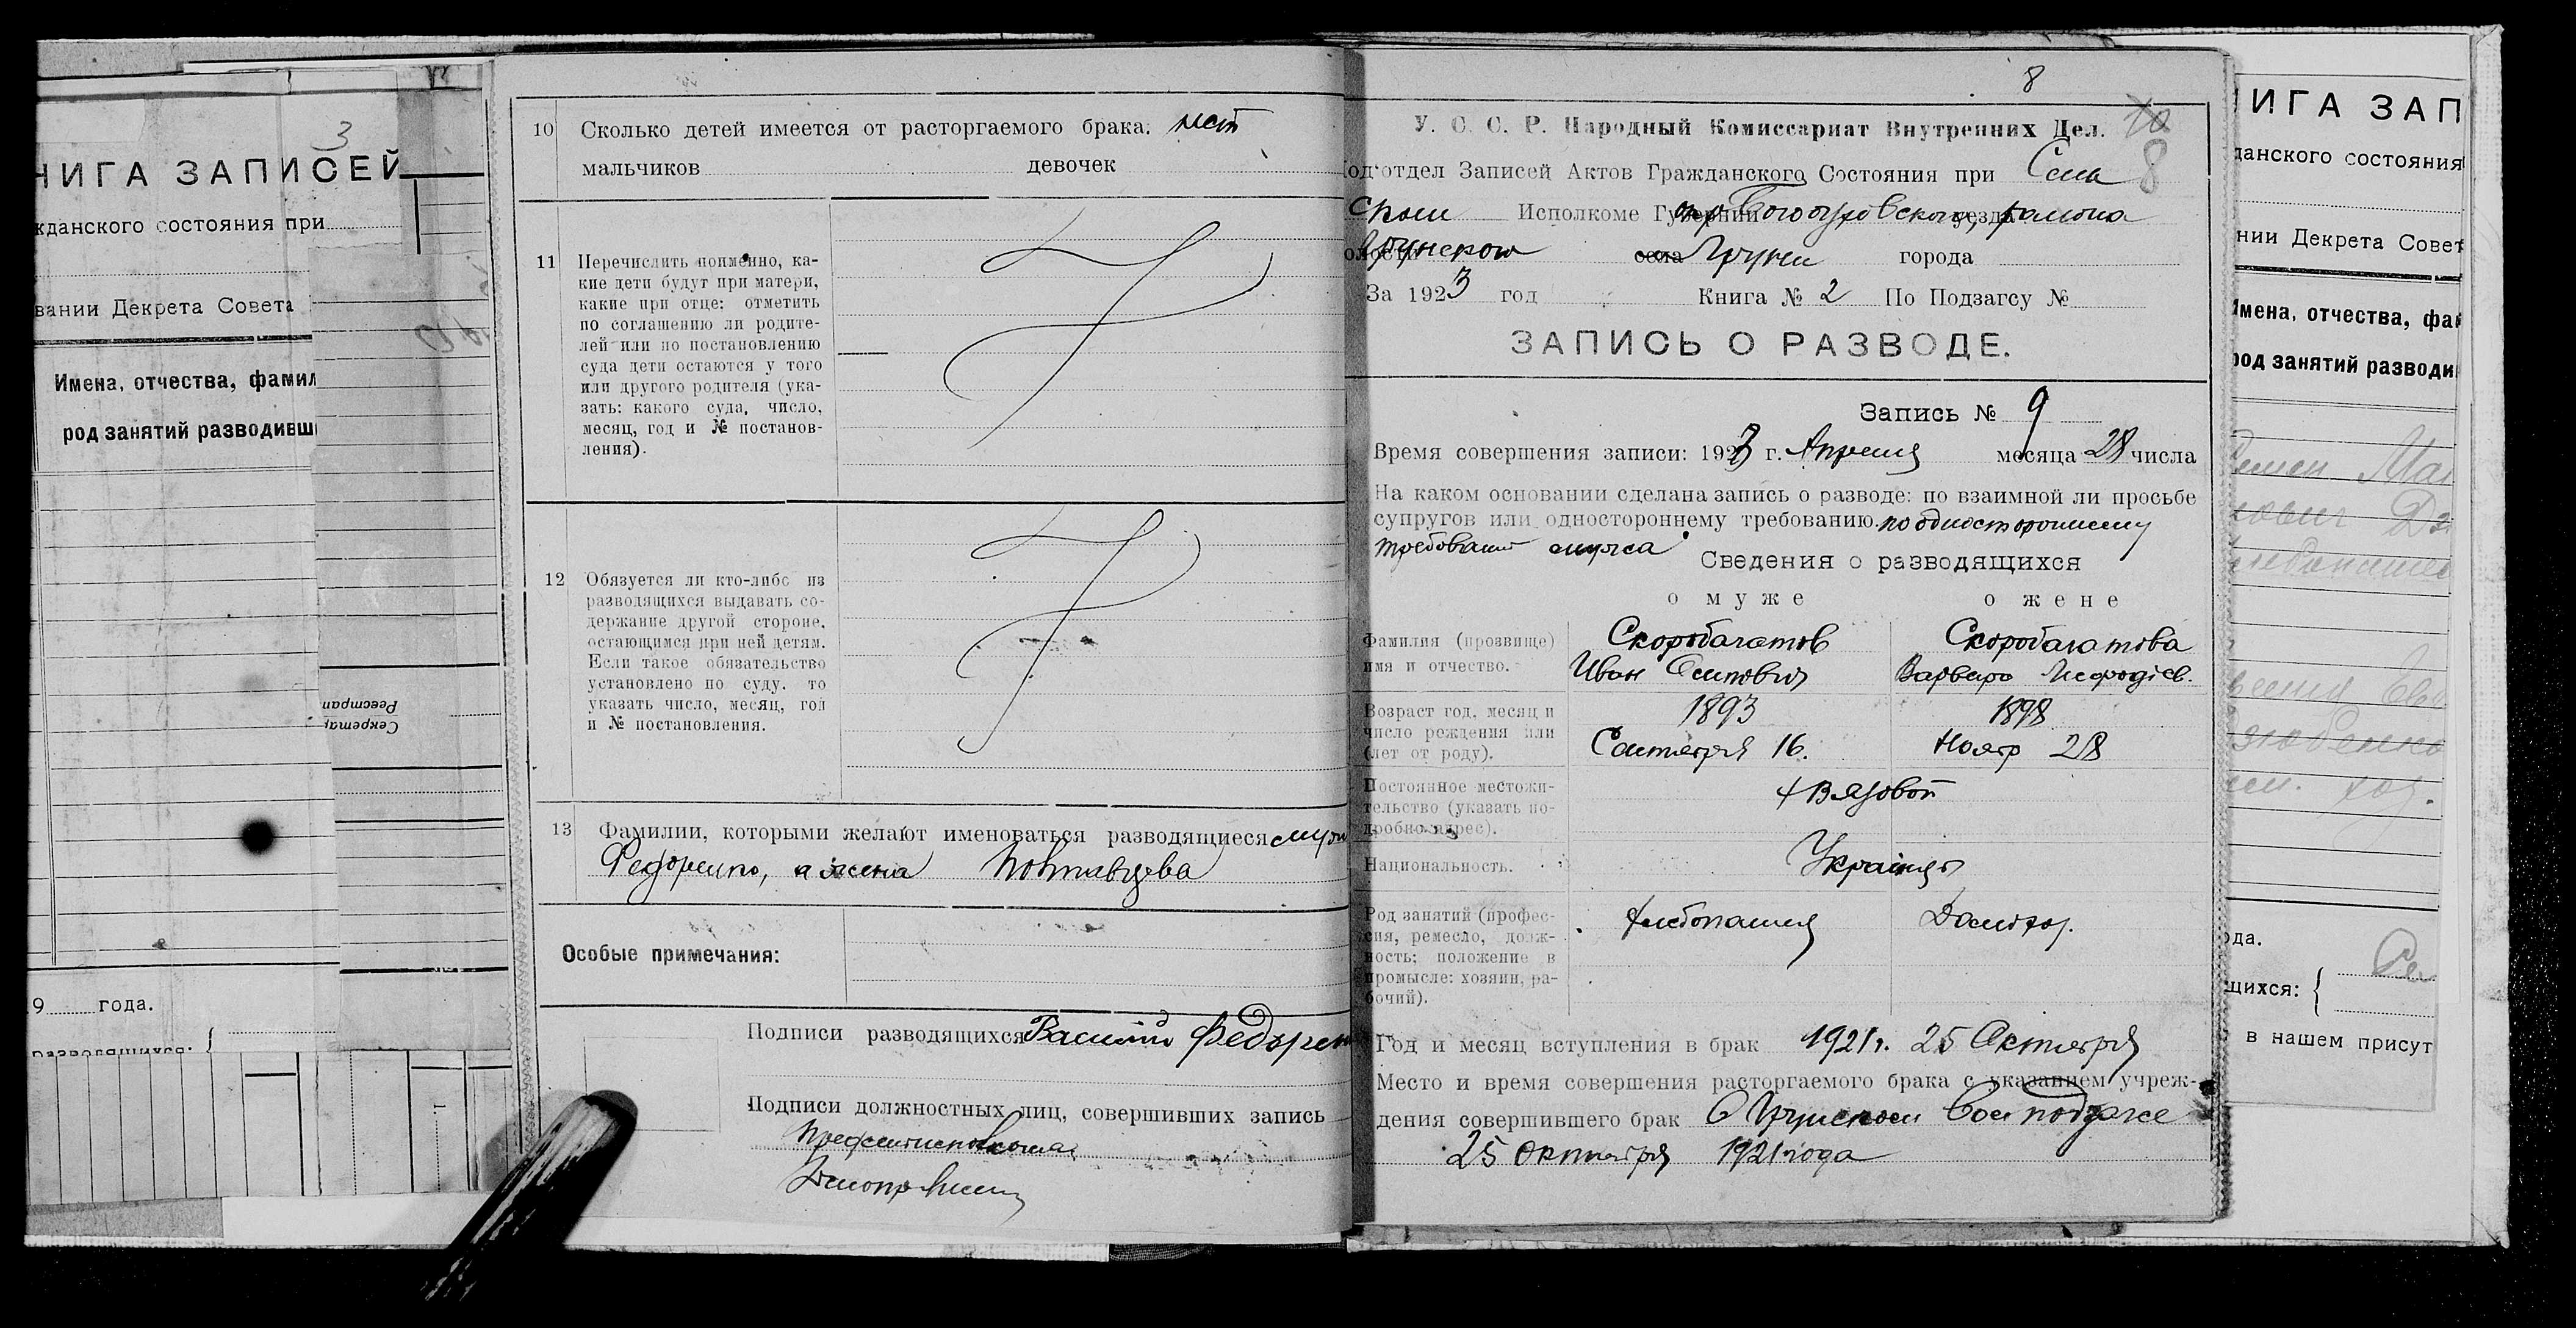 3
НИГА ЗАПИСЕЙ
жданского состояния при
вании Декрета Совета
Имена, отчества, фамил
род занятий разводивш
Реестрап
Секрета
9 года.
разводящихся: {
10 Сколько детей имеется от расторгаемого брака. нет
мальчиков девочек
11 Перечислить поименно, ка-
кие дети будут при матери,
какие при отце: отметить
по соглашению ли родите-
лей или по постановлению
суда дети остаются у того
или другого родителя (ука-
зать: какого суда, число,
месяц, год и № постанов-
ления).
12 Обязуется ли кто-либо из
разводящихся выдавать со-
держание другой стороне,
остающимся при ней детям.
Если такое обязательство
установлено по суду, то
указать число, месяц, год
и № постановления.
13 Фамилии, которыми желают именоваться разводящиеся муж
Федоренко, а жена Повтавцева
Особые примечания:
Подписи разводящихся Василий Федорен
Подписи должностных лиц, совершивших запись
8
10
У. С. С. Р. Народный Комиссариат Внутренних Дел.
Под'отдел Записей Актов Гражданского Состояния при Сель 8
ском Исполкоме Губернии Богодуховского уезда района
олости Грунском села Груни города
За 1923 год Книга № 2 По Подзагсу №
ЗАПИСЬ О РАЗВОДЕ.
Запись № 9
Время совершения записи: 1923 г. Апреля месяца 28 числа
На каком основании сделана запись о разводе: по взаимной ли просьбе
супругов или одностороннему требованию. по одностороннему
требованию мужа
Сведения о разводящихся
о муже о жене
Фамилия (прозвище) Скоробагатов Скоробагатова
имя и отчество. Иван Осипович Варвара Мефодіев.
Возраст год, месяц и 1893 1898
число рождения или
(лет от роду). Сентября 16. Нояб 28
Постоянное местожи- х Вязовой
тельство (указать по-
дробно адрес).
Национальность. Украінцы
Род занятий (профес- хлебопашец Домохоз.
сия, ремесло, долж-
ность; положение в
промысле: хозяин, ра-
бочий).
Год и месяц вступления в брак 1921 г. 25 Октября
Место и время совершения расторгаемого брака с указанием учреж-
дения совершившего брак В Грунском Вол подзаге
25 октября 1921 года
НИГА ЗАП
данского состояния
нии Декрета Совет
Имена, отчества, фам
род занятий разводи
хоз.
ода.
щихся: {
в нашем присут